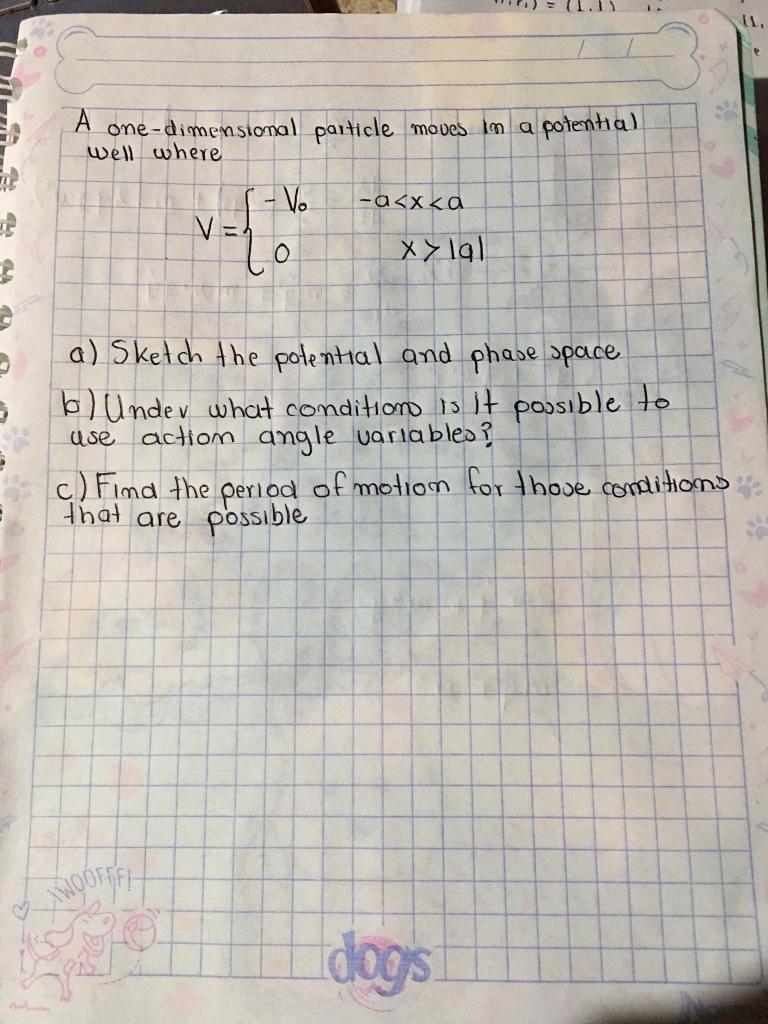 ) = (1,1)
11.
A one-dimensional particle moves in a potential
well where
V = { -V₀   -a<x<a
0   x>|a|
a) Sketch the potential and phase space
b) Under what conditions is it possible to
use action angle variables?
c) Find the period of motion for those conditions
that are possible
¡WOOFFF!
dogs